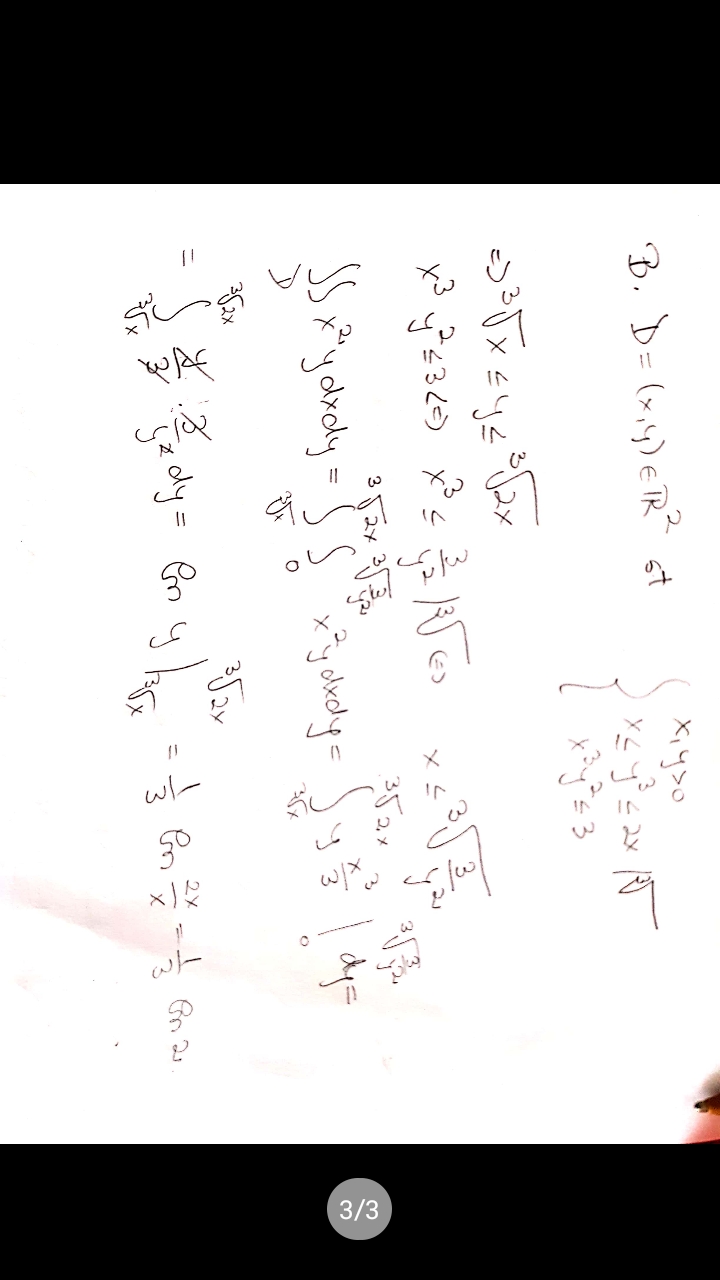 B. D = (x,y) ∈ ℝ² st { x,y>0
x ≤ y³ ≤ 2x |∛
x³y² ≤ 3
=> ∛x ≤ y ≤ ∛2x
x³ y² ≤ 3 (=) x³ ≤ 3/y² |∛ (=) x ≤ ∛(3/y²)
∬_D x² y dxdy = ∫_{∛x}^{∛2x} ∫_0^{∛(3/y²)} x² y dxdy = ∫_{∛x}^{∛2x} y x³/3 |_0^{∛(3/y²)} dy =
= ∫_{∛x}^{∛2x} y/3 · 3/y² dy = ln y |_{∛x}^{∛2x} = 1/3 ln 2x/x = 1/3 ln 2.
3/3